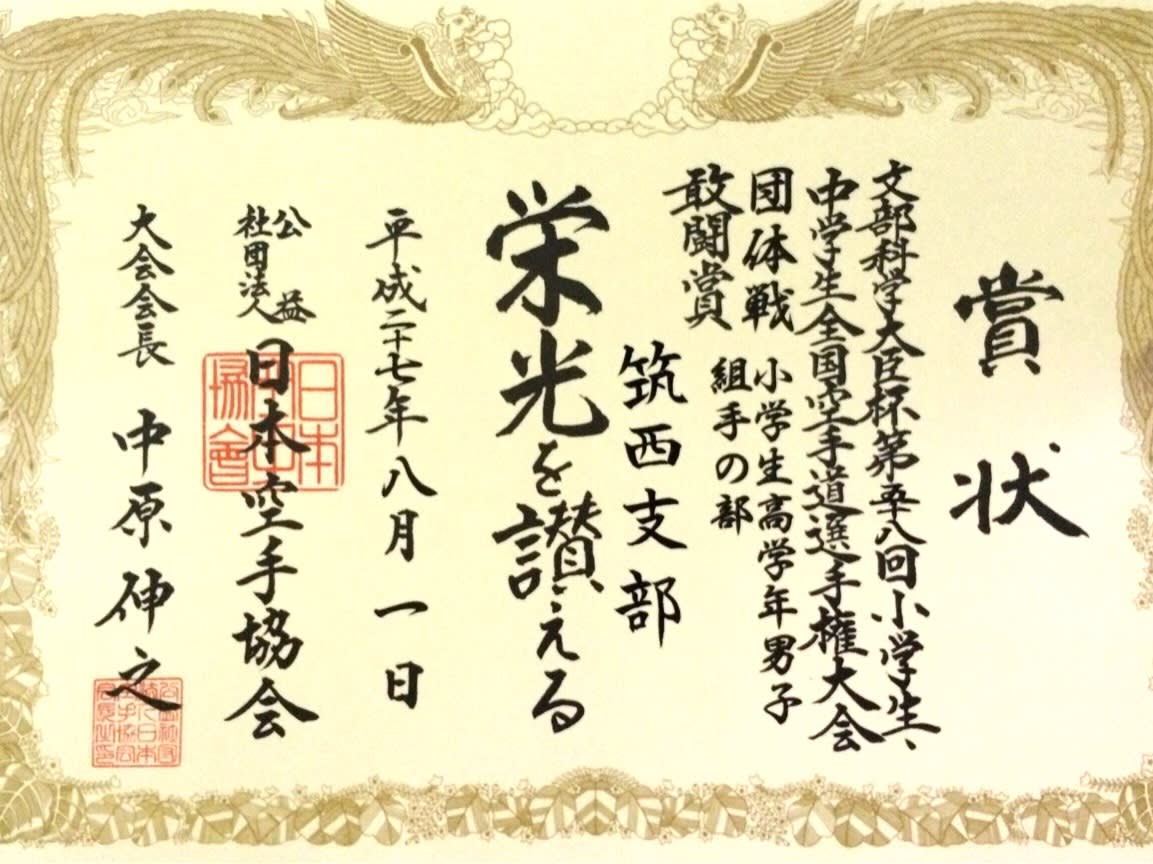 賞状
文部科学大臣杯第五十八回小学生、
中学生全国空手道選手権大会
団体戦 小学生高学年男子
組手の部
敢闘賞
筑西支部
栄光を讃える
平成二十七年八月一日
公益
社団法人
日本空手協会
大会会長 中原伸之